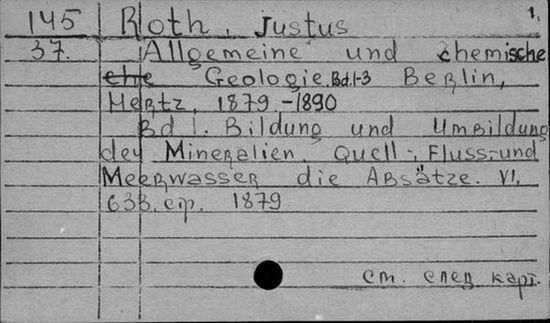 145 Roth, Justus 1.
37. Allgemeine und chemische
che Geologie. Bd. 1-3 Berlin,
Hertz, 1879.-1890
Bd 1. Bildung und Umbildung
der Mineralien. Quell-, Fluss-und
Meerwasser die Absätze. VI,
633. стр. 1879
см. след карт.